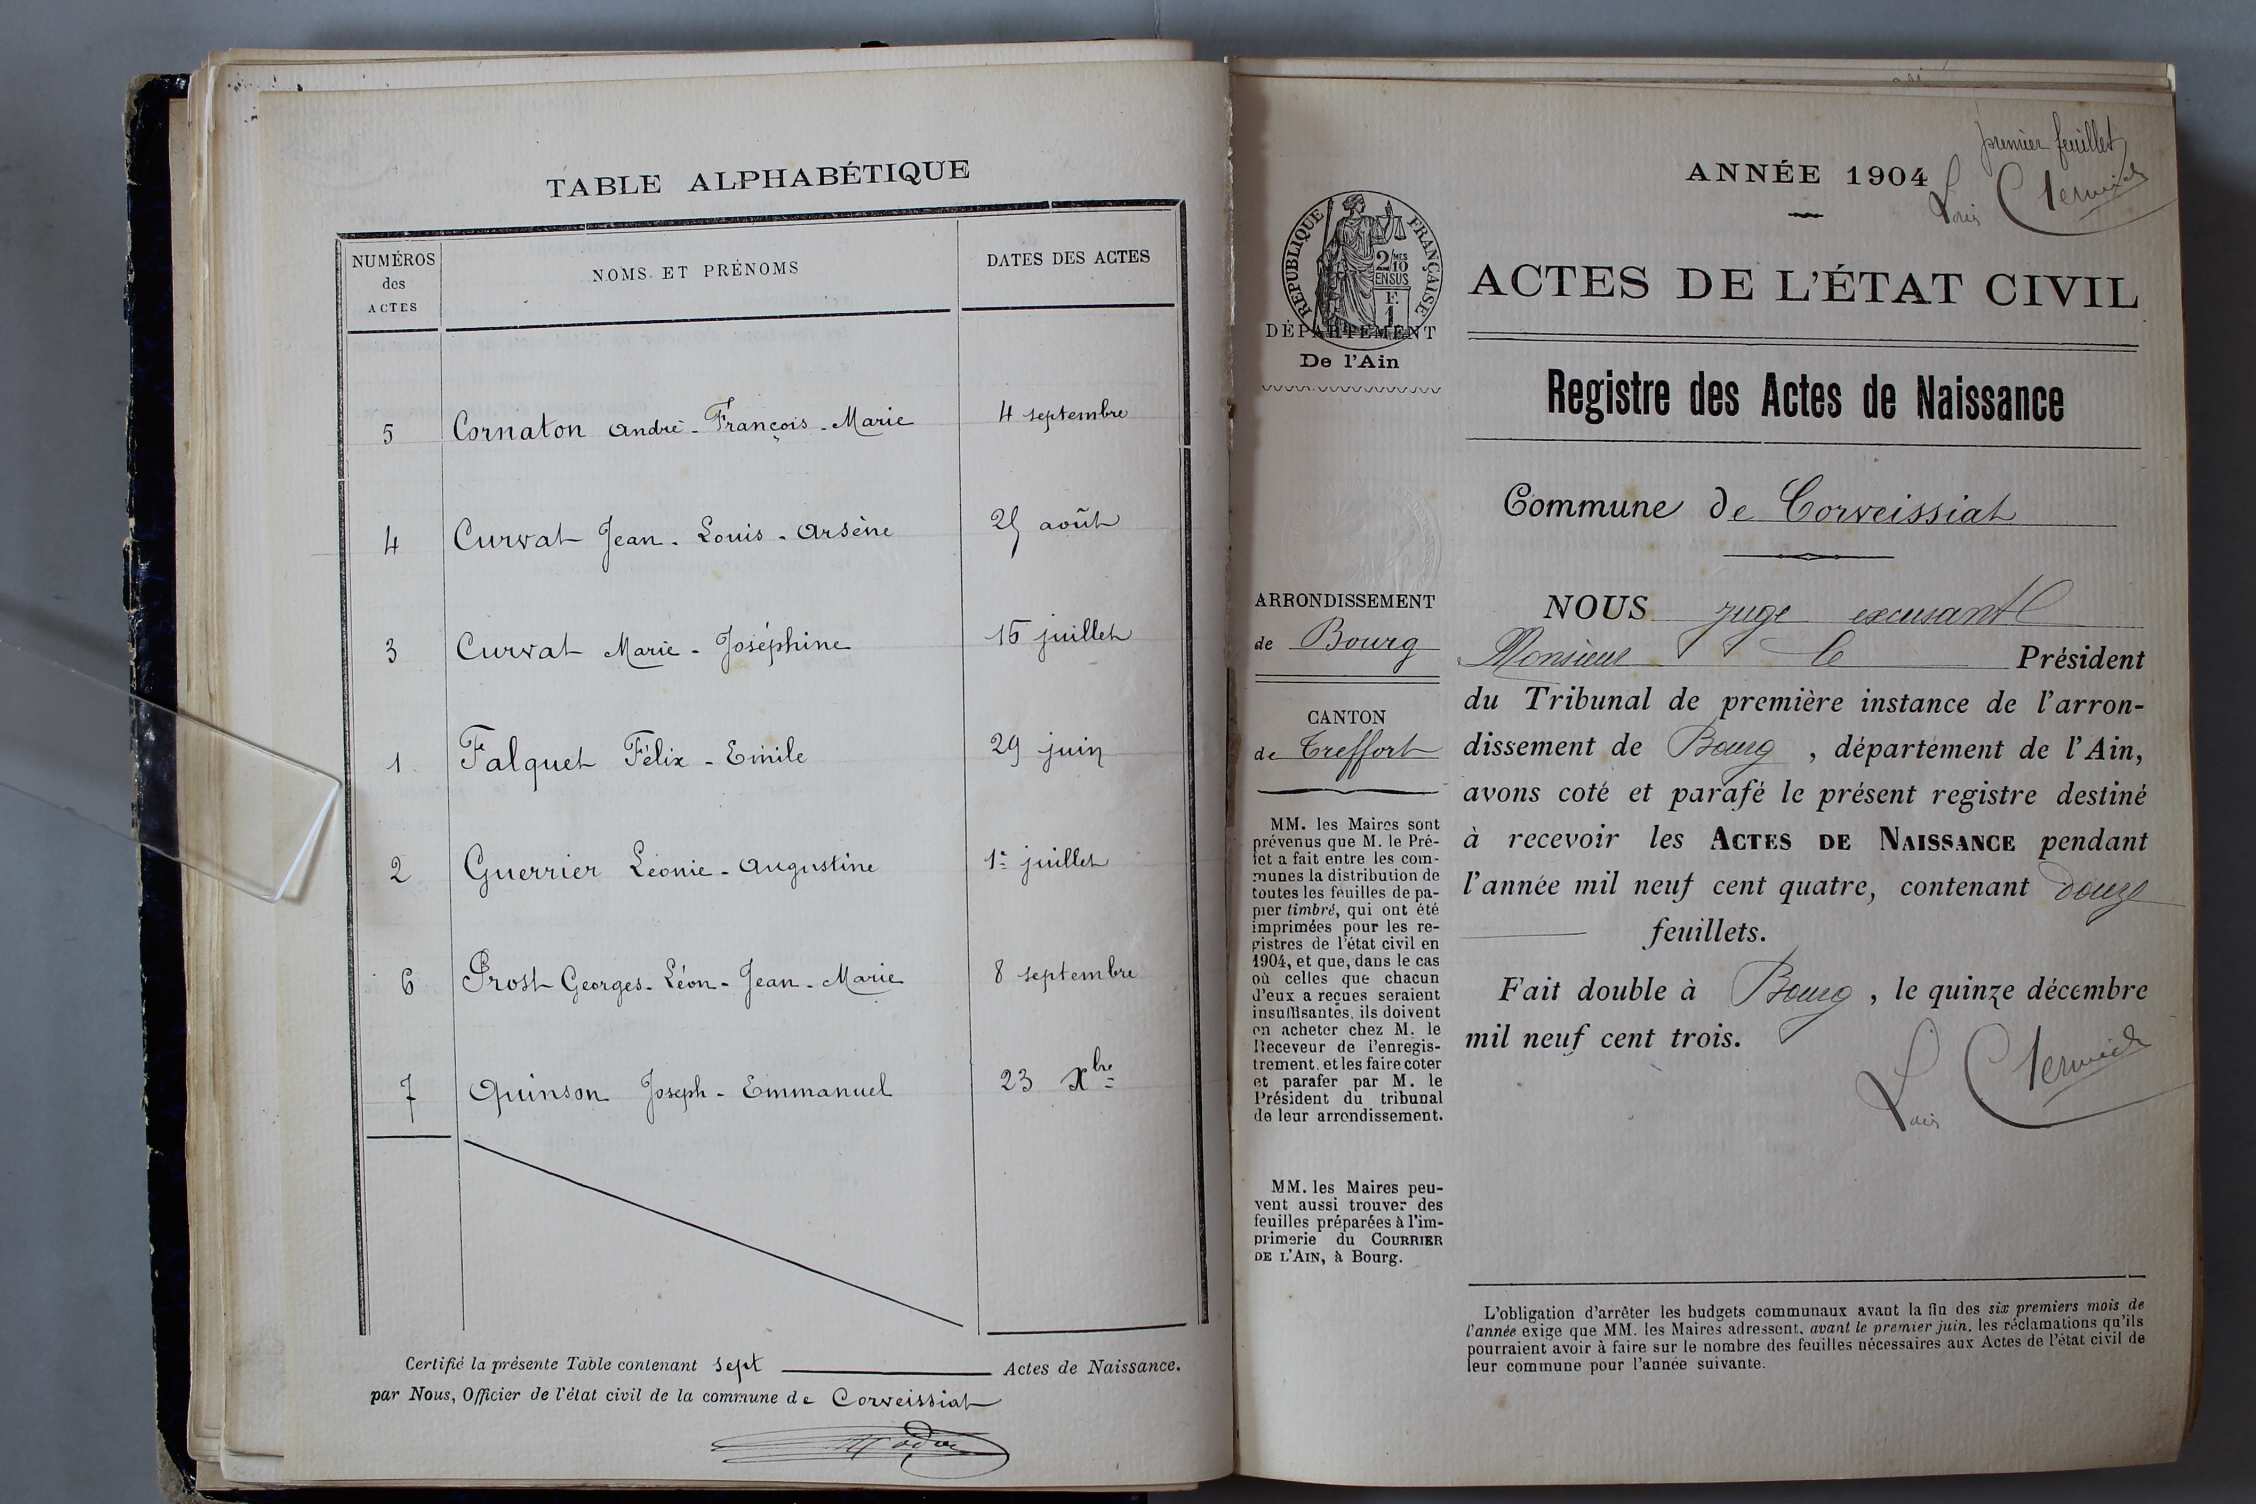 TABLE ALPHABÉTIQUE
NUMÉROS
des
ACTES
NOMS ET PRÉNOMS
DATES DES ACTES
5 Cornaton André - François - Marie 4 septembre
4 Curvat Jean - Louis - Arsène 25 août
3 Curvat Marie - Joséphine 16 juillet
1 Falquet Félix - Emile 29 juin
2 Guerrier Léonie - Augustine 1er juillet
6 Prost Georges - Léon - Jean - Marie 8 septembre
7 Quinson Joseph - Emmanuel 23 Xbre
Certifié la présente Table contenant sept Actes de Naissance.
par Nous, Officier de l'état civil de la commune de Corveissiat
premier feuillet
ANNÉE 1904
Louis
RÉPUBLIQUE FRANÇAISE
2/10 MES
EN SUS
F.
1
DÉPARTEMENT
De l'Ain
ACTES DE L'ÉTAT CIVIL
Registre des Actes de Naissance
Commune de Corveissiat
ARRONDISSEMENT
de Bourg
CANTON
de Treffort
MM. les Maires sont
prévenus que M. le Pré-
fet a fait entre les com-
munes la distribution de
toutes les feuilles de pa-
pier timbré, qui ont été
imprimées pour les re-
gistres de l'état civil en
1904, et que, dans le cas
où celles que chacun
d'eux a reçues seraient
insuffisantes, ils doivent
en acheter chez M. le
Receveur de l'enregis-
trement, et les faire coter
et parafer par M. le
Président du tribunal
de leur arrondissement.
MM. les Maires peu-
vent aussi trouver des
feuilles préparées à l'im-
primerie du COURRIER
DE L'AIN, à Bourg.
NOUS juge excusant
Monsieur le Président
du Tribunal de première instance de l'arron-
dissement de Bourg, département de l'Ain,
avons coté et parafé le présent registre destiné
à recevoir les ACTES DE NAISSANCE pendant
l'année mil neuf cent quatre, contenant douze
feuillets.
Fait double à Bourg, le quinze décembre
mil neuf cent trois.
Louis
L'obligation d'arrêter les budgets communaux avant la fin des six premiers mois de
l'année exige que MM. les Maires adressent, avant le premier juin, les réclamations qu'ils
pourraient avoir à faire sur le nombre des feuilles nécessaires aux Actes de l'état civil de
leur commune pour l'année suivante.